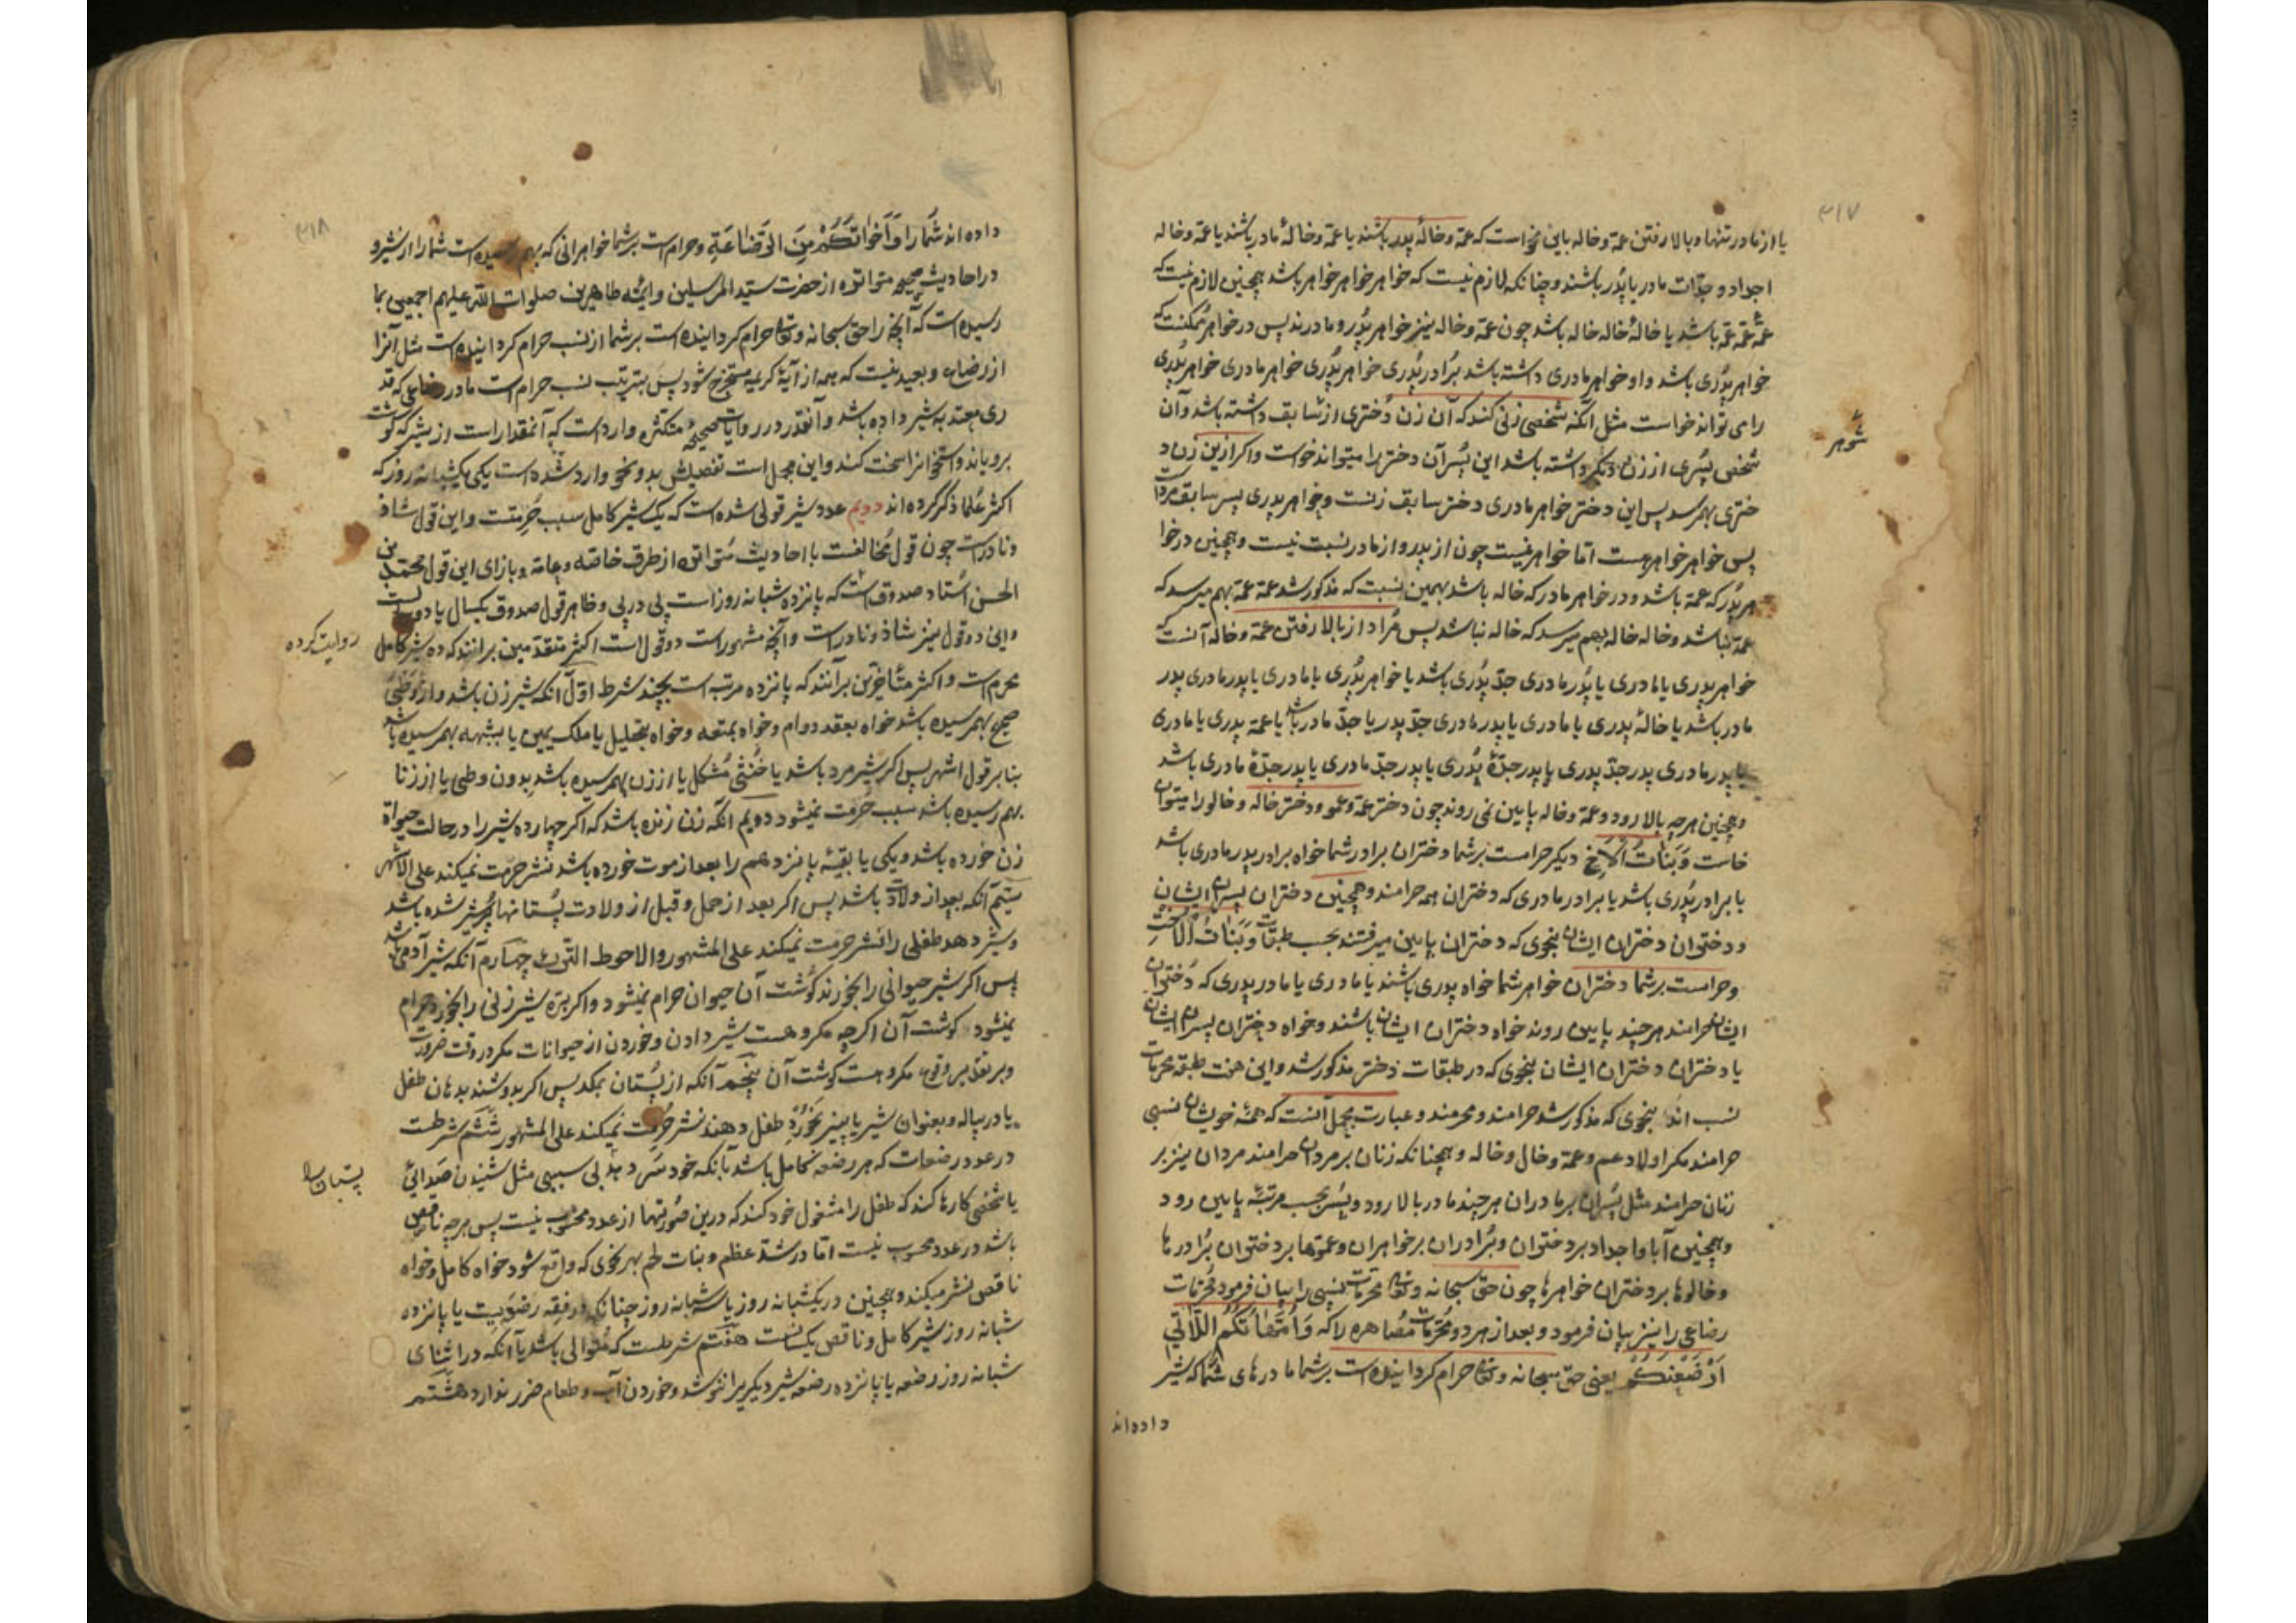 ۳۱۷
یا از مادر تنها و بالا رفتن عمّه و خاله باین نحو است که عمّه و خالهٔ پدر باشند یا عمّه و خالهٔ مادر باشند یا عمّه و خاله
اجداد و جدّات مادر یا پدر باشند و چنانکه لازم نیست که خواهر خواهر خواهر باشد همچنین لازم نیست که
عمّهٔ عمّه عمّه باشد یا خالهٔ خاله خاله باشد چون عمّه و خاله نیز خواهر پدر و مادرند پس در خواهر ممکنست که
خواهر پدری باشد و او خواهر مادری داشته باشد برادر پدری خواهر پدری خواهر مادری خواهر پدری
را می تواند خواست مثل آنکه شخصی زنی کند که آن زن دختری از سابق داشته باشد و آن
شوهر
شخص پسری از زن دیگر داشته باشد این پسر آن دختر را میتواند خواست و اگر ازین زن د
ختری بهم رسد پس این دختر خواهر مادری دختر سابق زنست و خواهر پدری پسر سابق مرد است
پس خواهر خواهر هست امّا خواهر نیست چون از پدر و از مادر نسبت نیست و همچنین در خوا
هر پدر که عمّه باشد و در خواهر مادر که خاله باشد بهمین نسبت که مذکور شد عمّه عمّه بهم میرسد که
عمّه نباشد و خاله خاله بهم میرسد که خاله نباشد پس مراد از بالا رفتن عمّه و خاله آنست که
خواهر پدری یا مادری یا پدر مادری جدّ پدری باشد یا خواهر پدری یا مادری یا پدر مادری پدر
مادر باشد یا خالهٔ پدری یا مادری یا پدر مادری جدّ پدر یا جدّ مادر باشد یا عمّه پدری یا مادری
یا پدر مادری پدر جدّ پدری یا پدر جدّهٔ پدری یا پدر جدّ مادری یا پدر جدّهٔ مادری باشد
و همچنین هر چه بالا رود و عمّه و خاله پایین نمی روند چون دختر عمّه و عمو و دختر خاله و خالو را میتوان
خاست وَبَنَاتُ الْاَخِ دیگر حرامست بر شما دختران برادر شما خواه برادر پدر مادری باشد
یا برادر پدری باشد یا برادر مادری که دختران همه حرامند و همچنین دختران پسران ایشان
و دختران دختران ایشان بنحوی که دختران پایین میرفتند بحسب طبقات وَبَنَاتُ الْاُخْتِ
و حرامست بر شما دختران خواهر شما خواه پدری باشند یا مادری یا مادر پدری که دختران
ایشان حرامند هر چند پایین روند خواه دختران ایشان باشند و خواه دختران پسران ایشان
یا دختران دختران ایشان بنحوی که در طبقات دختر مذکور شد و این هفت طبقه محرمات
نسب اند بنحوی که مذکور شد حرامند و محرمند و عبارت مجمل آنست که همهٔ خویشان نسبی
حرامند مگر اولاد عم و عمّه و خال و خاله و همچنانکه زنان بر مردان حرامند مردان نیز بر
زنان حرامند مثل پسران بر مادران هر چند مادر بالا رود و پسر بحسب مرتبه پایین رود
و همچنین آبا و اجداد بر دختران و برادران بر خواهران و عموها بر دختران برادرها
و خالوها بر دختران خواهرها چون حق سبحانه و تعالی محرمات نسبی را بیان فرمود محرمات
رضاعی را نیز بیان فرمود و بعد از هر دو محرمات مصاهره را که وَاُمَّهَاتُكُمُ اللَّاتِي
اَرْضَعْنَكُمْ یعنی حق سبحانه و تعالی حرام گردانیده است بر شما مادرهای شما که شیر
داده اند
۳۱۸
داده اند شما را وَاَخَوَاتُكُمْ مِنَ الرَّضَاعَةِ و حرام است بر شما خواهرانی که بهم رسیده است شما را از شیر و
در احادیث صحیحه متواتره از حضرت سیّد المرسلین و ایمّه طاهرین صلوات اللّه علیهم اجمعین بما
رسیده است که آنچه را حق سبحانه و تعالی حرام گردانیده است بر شما از نسب حرام گردانیده است مثل آنرا
از رضاع و بعید نیست که همه از آیهٔ کریمه مستخرج شود پس بترتیب نسب حرام است مادر رضاعی که قد
ری معتد به شیر داده باشد و آنقدر در روایات صحیحه متکثره وارد است که آنمقدار است از شیر که گوشت
برویاند و استخوانرا سخت کند و این مجمل است تفصیلش بدو نحو وارد شده است یکی یکشبانه روز که
اکثر علما ذکر کرده اند دویم عدد شیر قولی شده است که یک شیر کامل سبب حرمتست و این قول شاذ
و نادر است چون قول مخالفست با احادیث متواتره از طرق خاصّه و عامّه و بازای این قول محمد بن
الحسن استاد صدوق است که پانزده شبانه روز است پی در پی و ظاهر قول صدوق یکسال یا دو سال است
روایت کرده
و این دو قول نیز شاذ و نادر است و آنچه مشهور است دو قول است اکثر متقدمین برانند که ده شیر کامل
محرم است و اکثر متأخرین برآنند که پانزده مرتبه است بچند شرط اوّل آنکه شیر زن باشد و از وطی
صحیح بهم رسیده باشد خواه بعقد دوام و خواه بمتعه و خواه بتحلیل یا ملک یمین یا بشبهه بهم رسیده باشد
بنابر قول اشهر پس اگر شیر مرد باشد یا خنثی مشکل یا از زن بهم رسیده باشد بدون وطی یا از زنا
بهم رسیده باشد سبب حرمت نمیشود دویم آنکه زن زنده باشد که اگر چهارده شیر را در حالت حیوة
زن خورده باشد و یکی یا بقیّه پانزدهم را بعد از موت خورده باشد نشر حرمت نمیکند علی الاشهر
سیّم آنکه بعد از ولادت باشد پس اگر بعد از حمل و قبل از ولادت پستانها پر شیر شده باشد
و شیر دهد طفلی را نشر حرمت نمیکند علی المشهور والاحوط الترک چهارم آنکه شیر آدمی باشد
پس اگر شیر حیوانی را بخورند گوشت آن حیوان حرام نمیشود و اگر برّه شیر زنی را بخورد حرام
نمیشود گوشت آن اگر چه مکروهست شیر دادن و خوردن از حیوانات مگر در وقت ضرورت
و بر تقدیر وقوع مکروهست گوشت آن پنجم آنکه از پستان بمکد پس اگر بدوشند بدهان طفل
یا در پیاله و بعنوان شیر یا پنیر بخورد طفل دهند نشر حرمت نمیکند علی المشهور ششم شرطست
در عدد رضعات که هر رضعه کامل باشد بآنکه خود سر دهد بی سببی مثل شنیدن صدایی
پستان را
یا شخصی کارها کند که طفل را مشغول خود کند که درین صورتها از عدد محسوب نیست پس هر چه ناقص
باشد در عدد محسوب نیست امّا در شدّ عظم و بنات لحم بهر نحوی که واقع شود خواه کامل و خواه
ناقص نشر میکند و همچنین در یکشبانه روز یا سه شبانه روز چنانکه در فقه رضویست یا پانزده
شبانه روز شیر کامل و ناقص یکسانست هفتم شرطست که متوالی باشد یا آنکه در اثنای
شبانه روز رضعه یا پانزده رضعه شیر دیگریرا ننوشد و خوردن آب و طعام ضرر ندارد هشتم